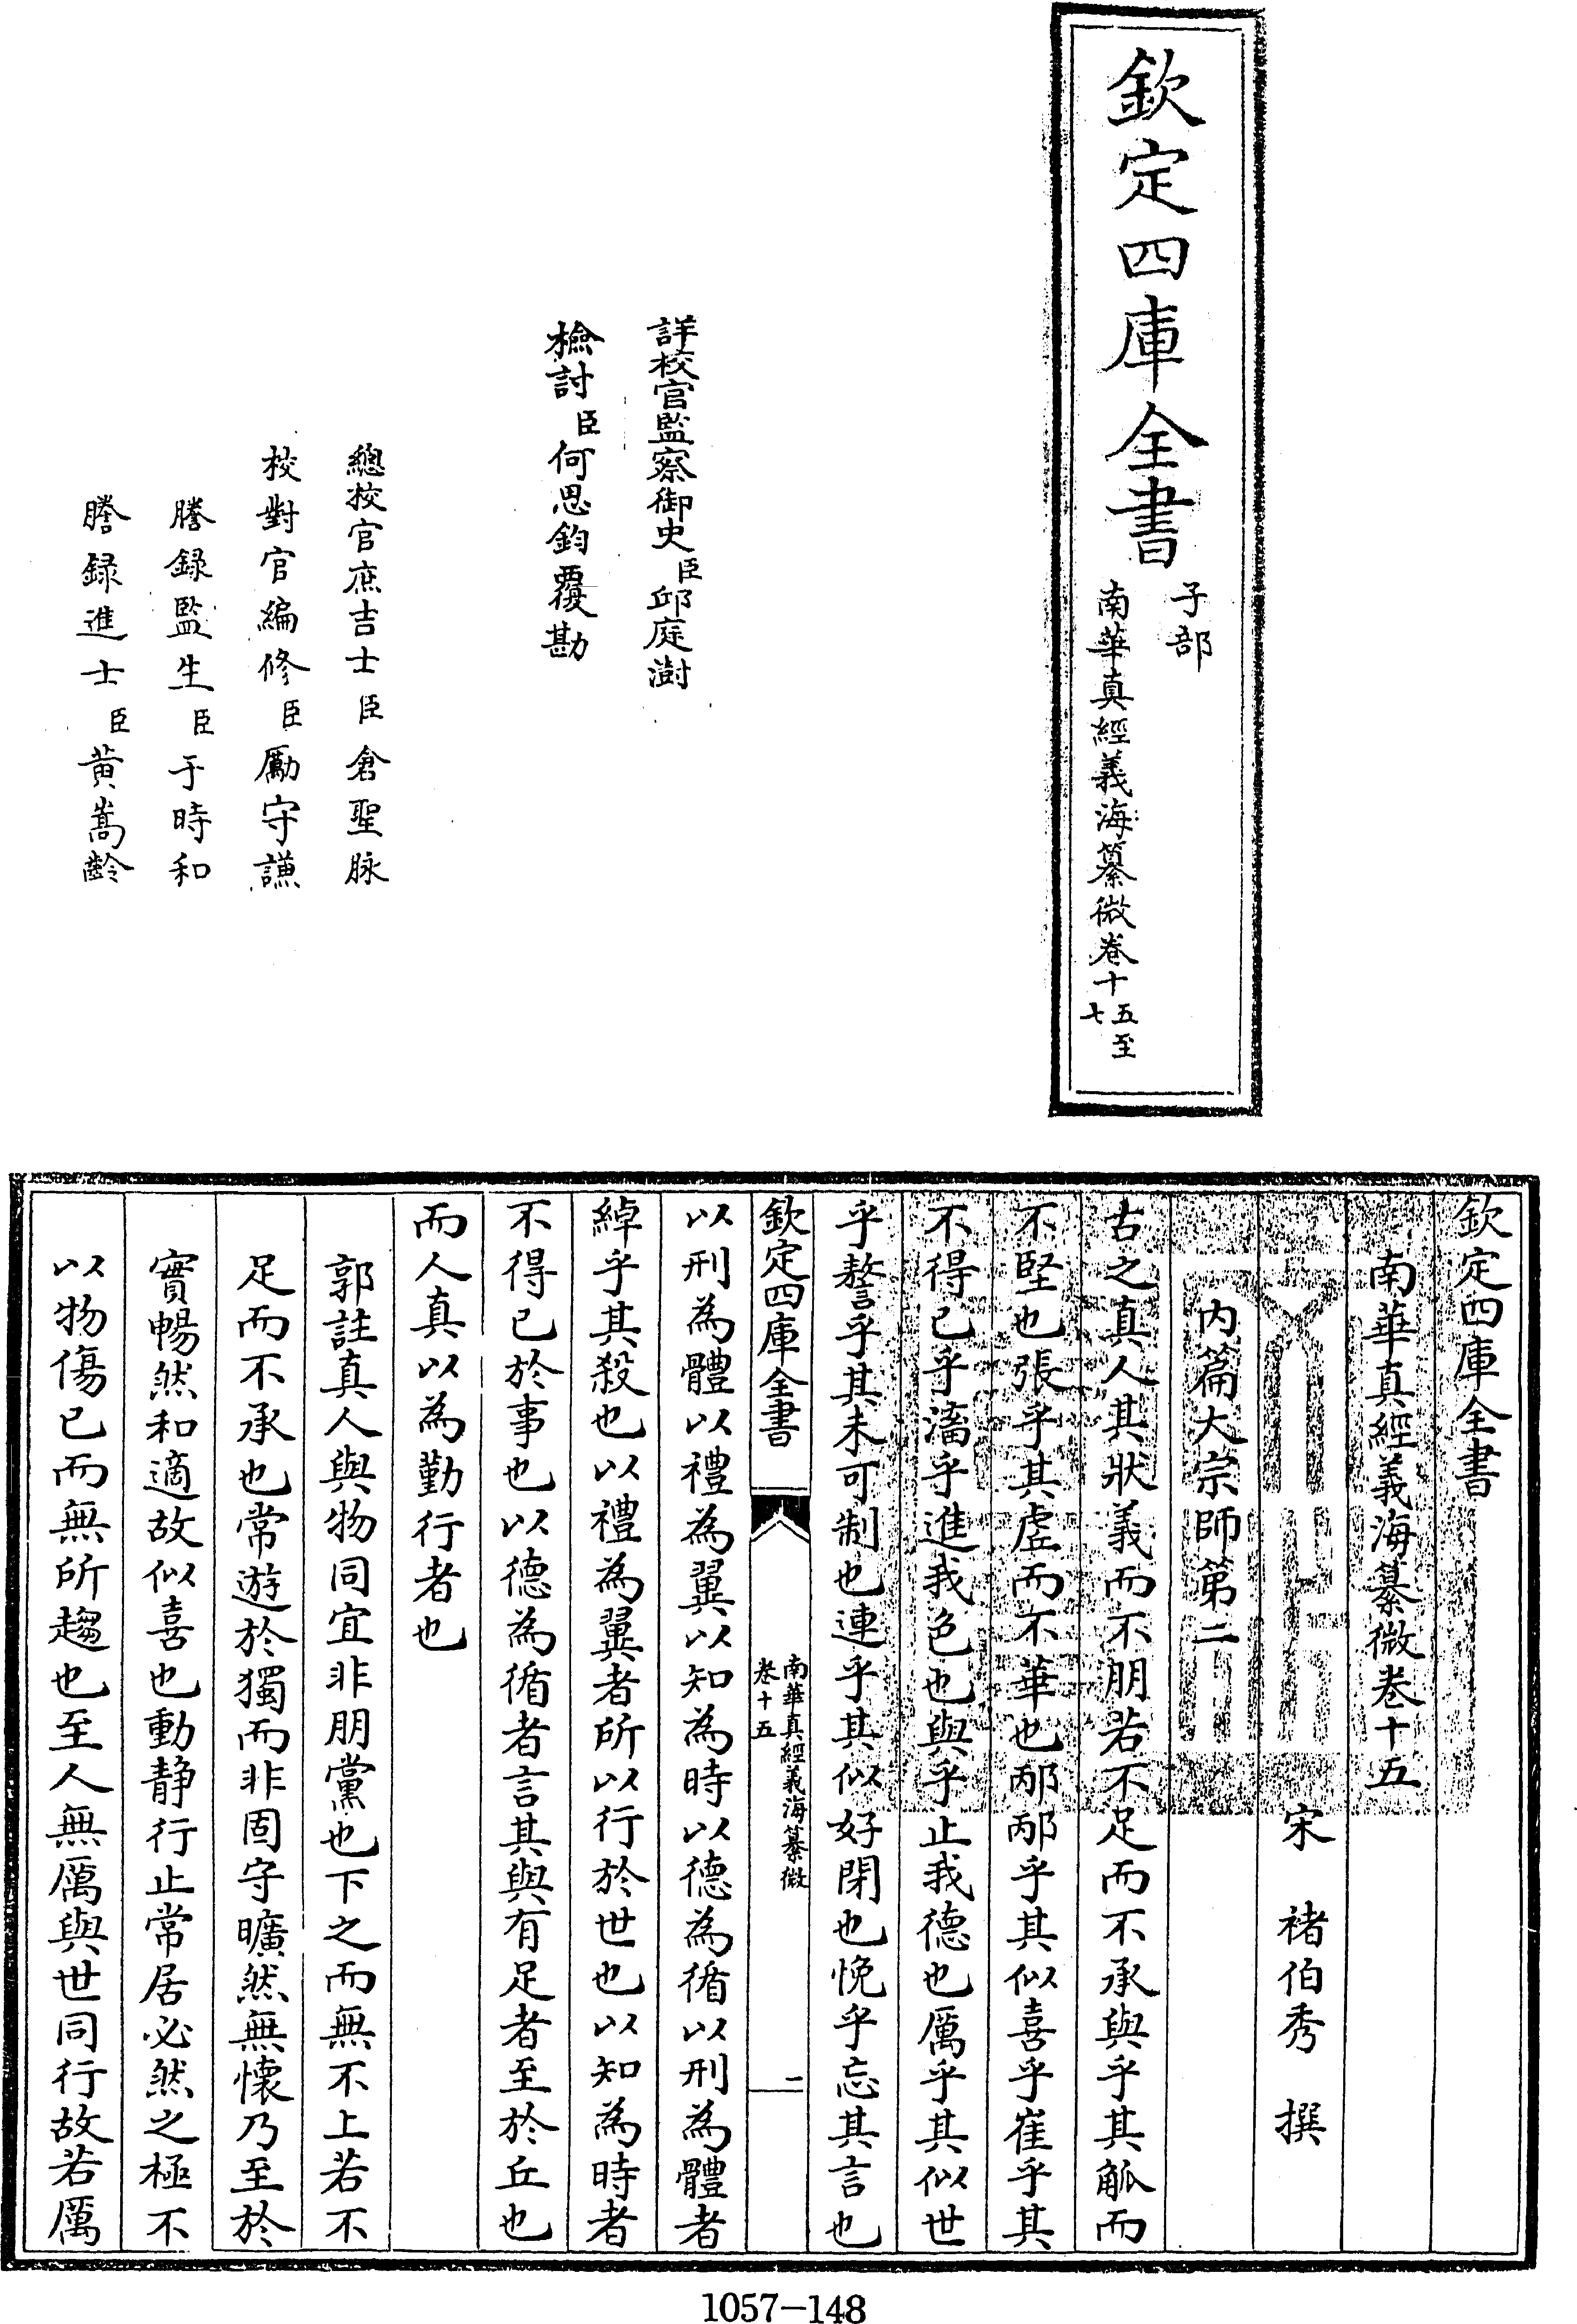 欽定四庫全書
子部
南華真經義海纂微卷十五至七
詳校官監察御史臣邱庭澍
檢討臣何思鈞覆勘
總校官庶吉士臣倉聖脉
校對官編修臣勵守謙
謄録監生臣于時和
謄録進士臣黄嵩齡
欽定四庫全書
南華真經義海纂微卷十五
宋 褚伯秀 撰
内篇大宗師第二
古之真人其狀義而不朋若不足而不承與乎其觚而
不堅也張乎其虛而不華也邴邴乎其似喜乎崔乎其
不得已乎滀乎進我色也與乎止我德也厲乎其似世
乎謷乎其未可制也連乎其似好閉也悗乎忘其言也
欽定四庫全書
南華真經義海纂微
卷十五
二
以刑為體以禮為翼以知為時以德為循以刑為體者
綽乎其殺也以禮為翼者所以行於世也以知為時者
不得已於事也以德為循者言其與有足者至於丘也
而人真以為勤行者也
郭註真人與物同宜非朋黨也下之而無不上若不
足而不承也常遊於獨而非固守曠然無懷乃至於
實暢然和適故似喜也動静行止常居必然之極不
以物傷已而無所趨也至人無厲與世同行故若厲
1057-148